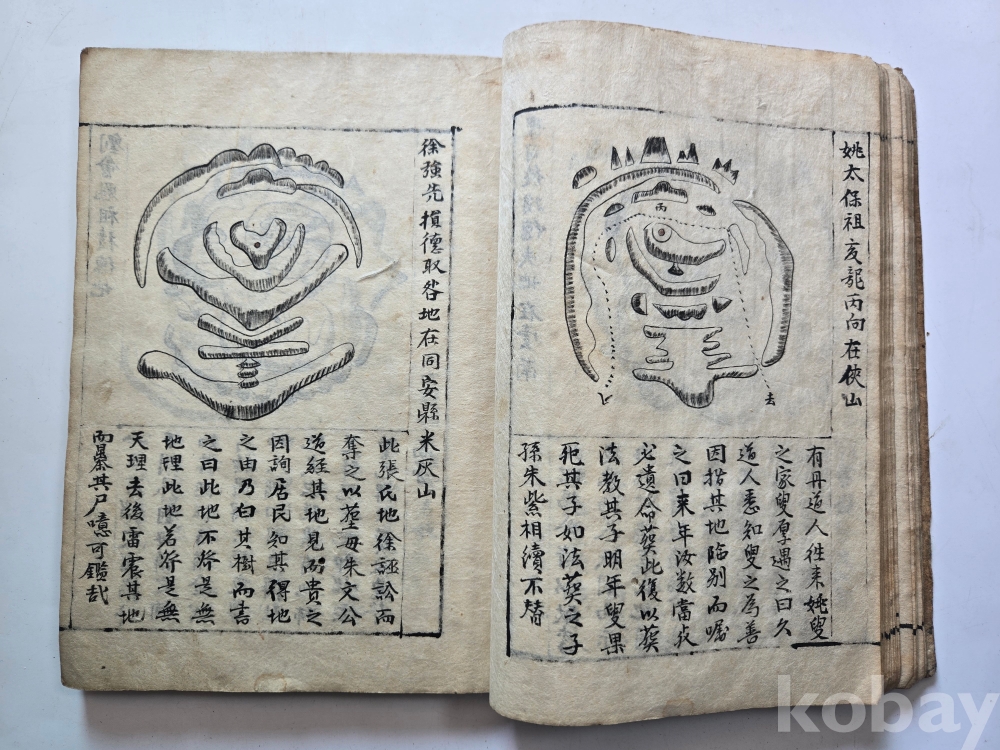 姚太保祖亥龍丙向在俠山
丙
去
有丹道人徃来姚叟
之家叟厚遇之曰久
道人悉知叟之為善
因指其地臨别而嘱
之曰来年汝数當
必遺命葬此復以葬
法教其子明年叟果
死其子如法葬之子
孫朱紫相續不替
徐強先損德取咎地在同安縣米灰山
此張氏地徐誣訟而
奪之以塟母朱文公
道経其地見而貴之
因詢居民知其得地
之由乃白其樹而書
之曰此地不發是無
地理此地若發是無
天理去後雷震其地
而暴其尸噫可鑑哉
kobay